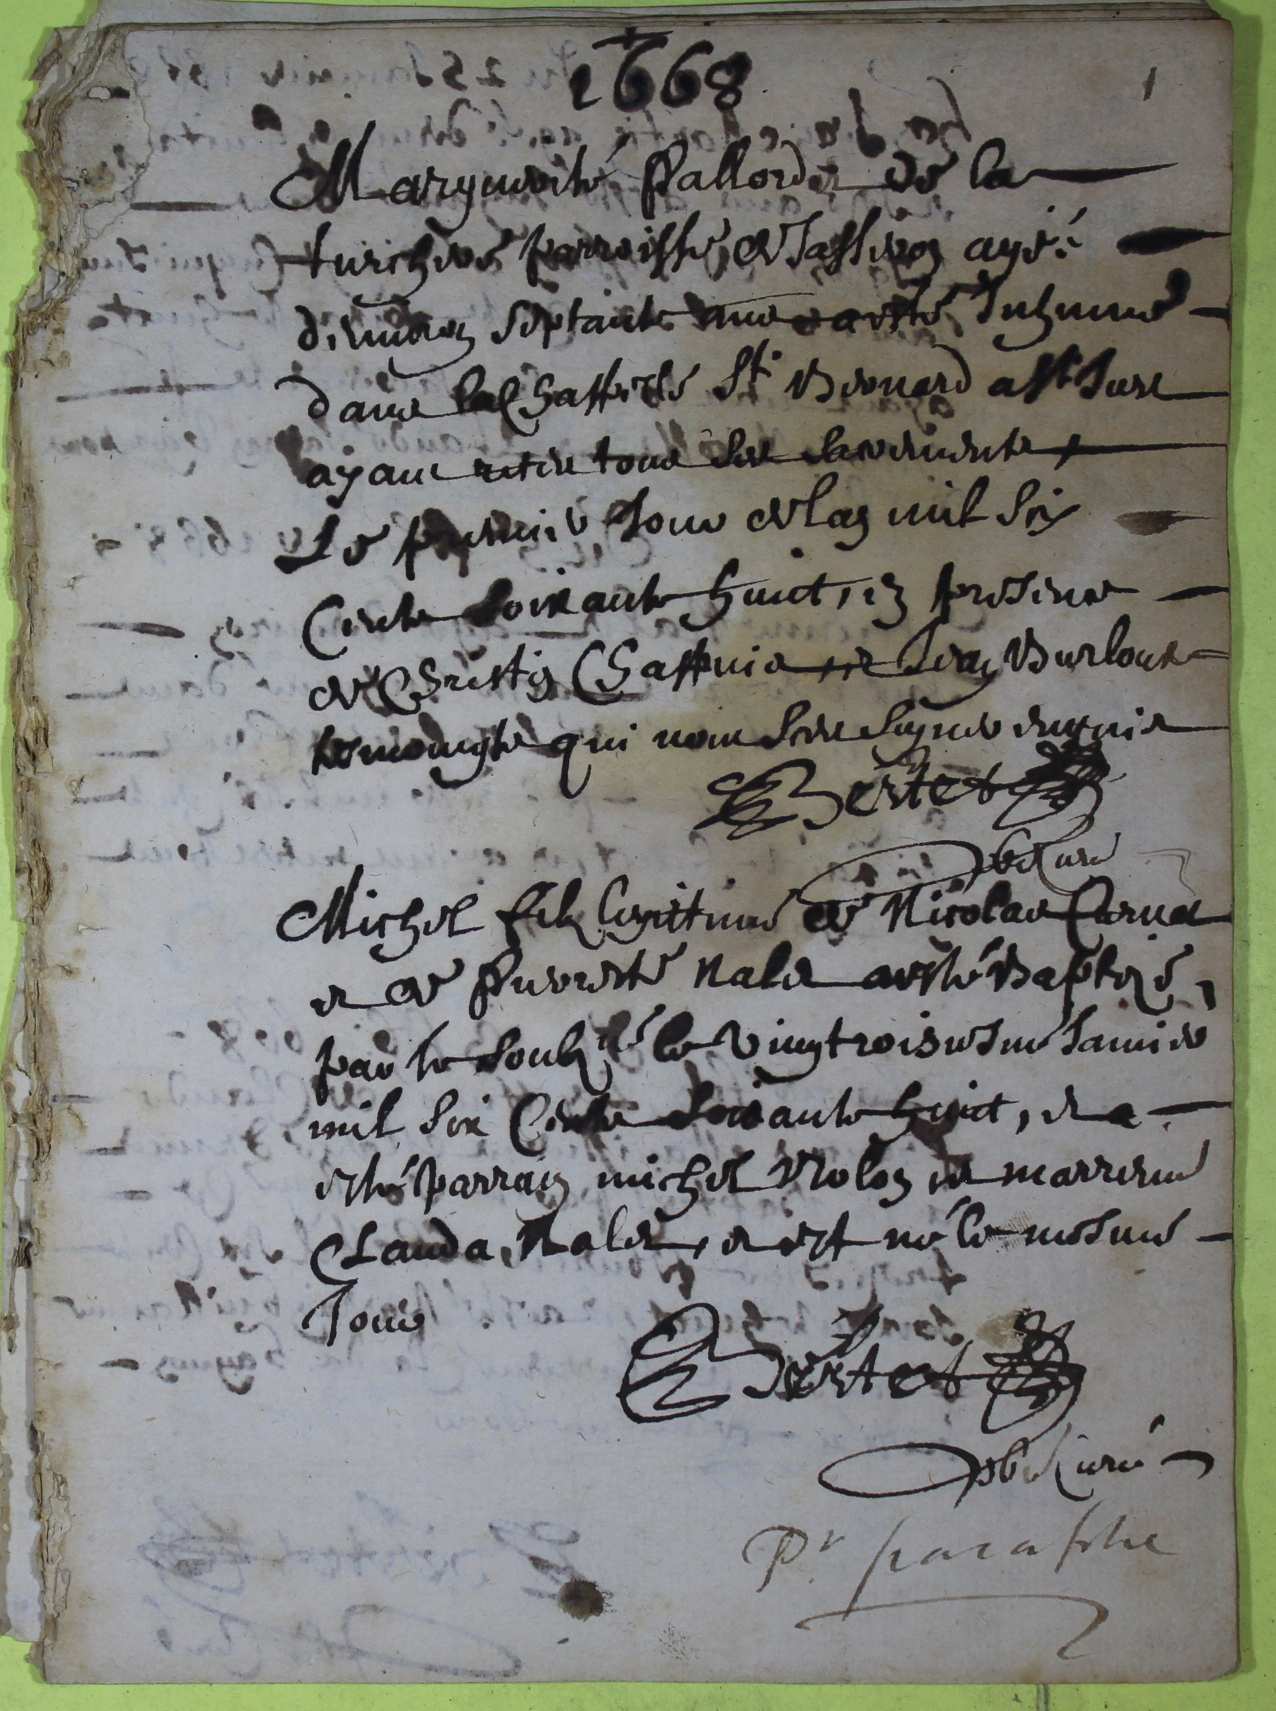 1668
1
Marguerite Pallordet de la
turchere parroisse de Jassieon agée
d'environ septante ans a esté Inhumé
dans la Chappelle St Bernard
ayant receu tous ses sacrements
Le premier Jour de lan mil six
Cents soixante huict, en presence
de Christin Chappuis et Jean Burlout
temoingts qui nont sceu signer enquis
Bertet
pbr Curé
Michel filz legittime de Nicolas Carna
et de Pierrette Nalet a esté Baptizé
par le soubz né le vingtroisiesme Janvier
mil six Cents soixante huict, et a
esté parrain michel Violon et marreine
Clauda Nalet, et est né le mesme
Jour
Bertet
pbr Curé
Pr paraphe